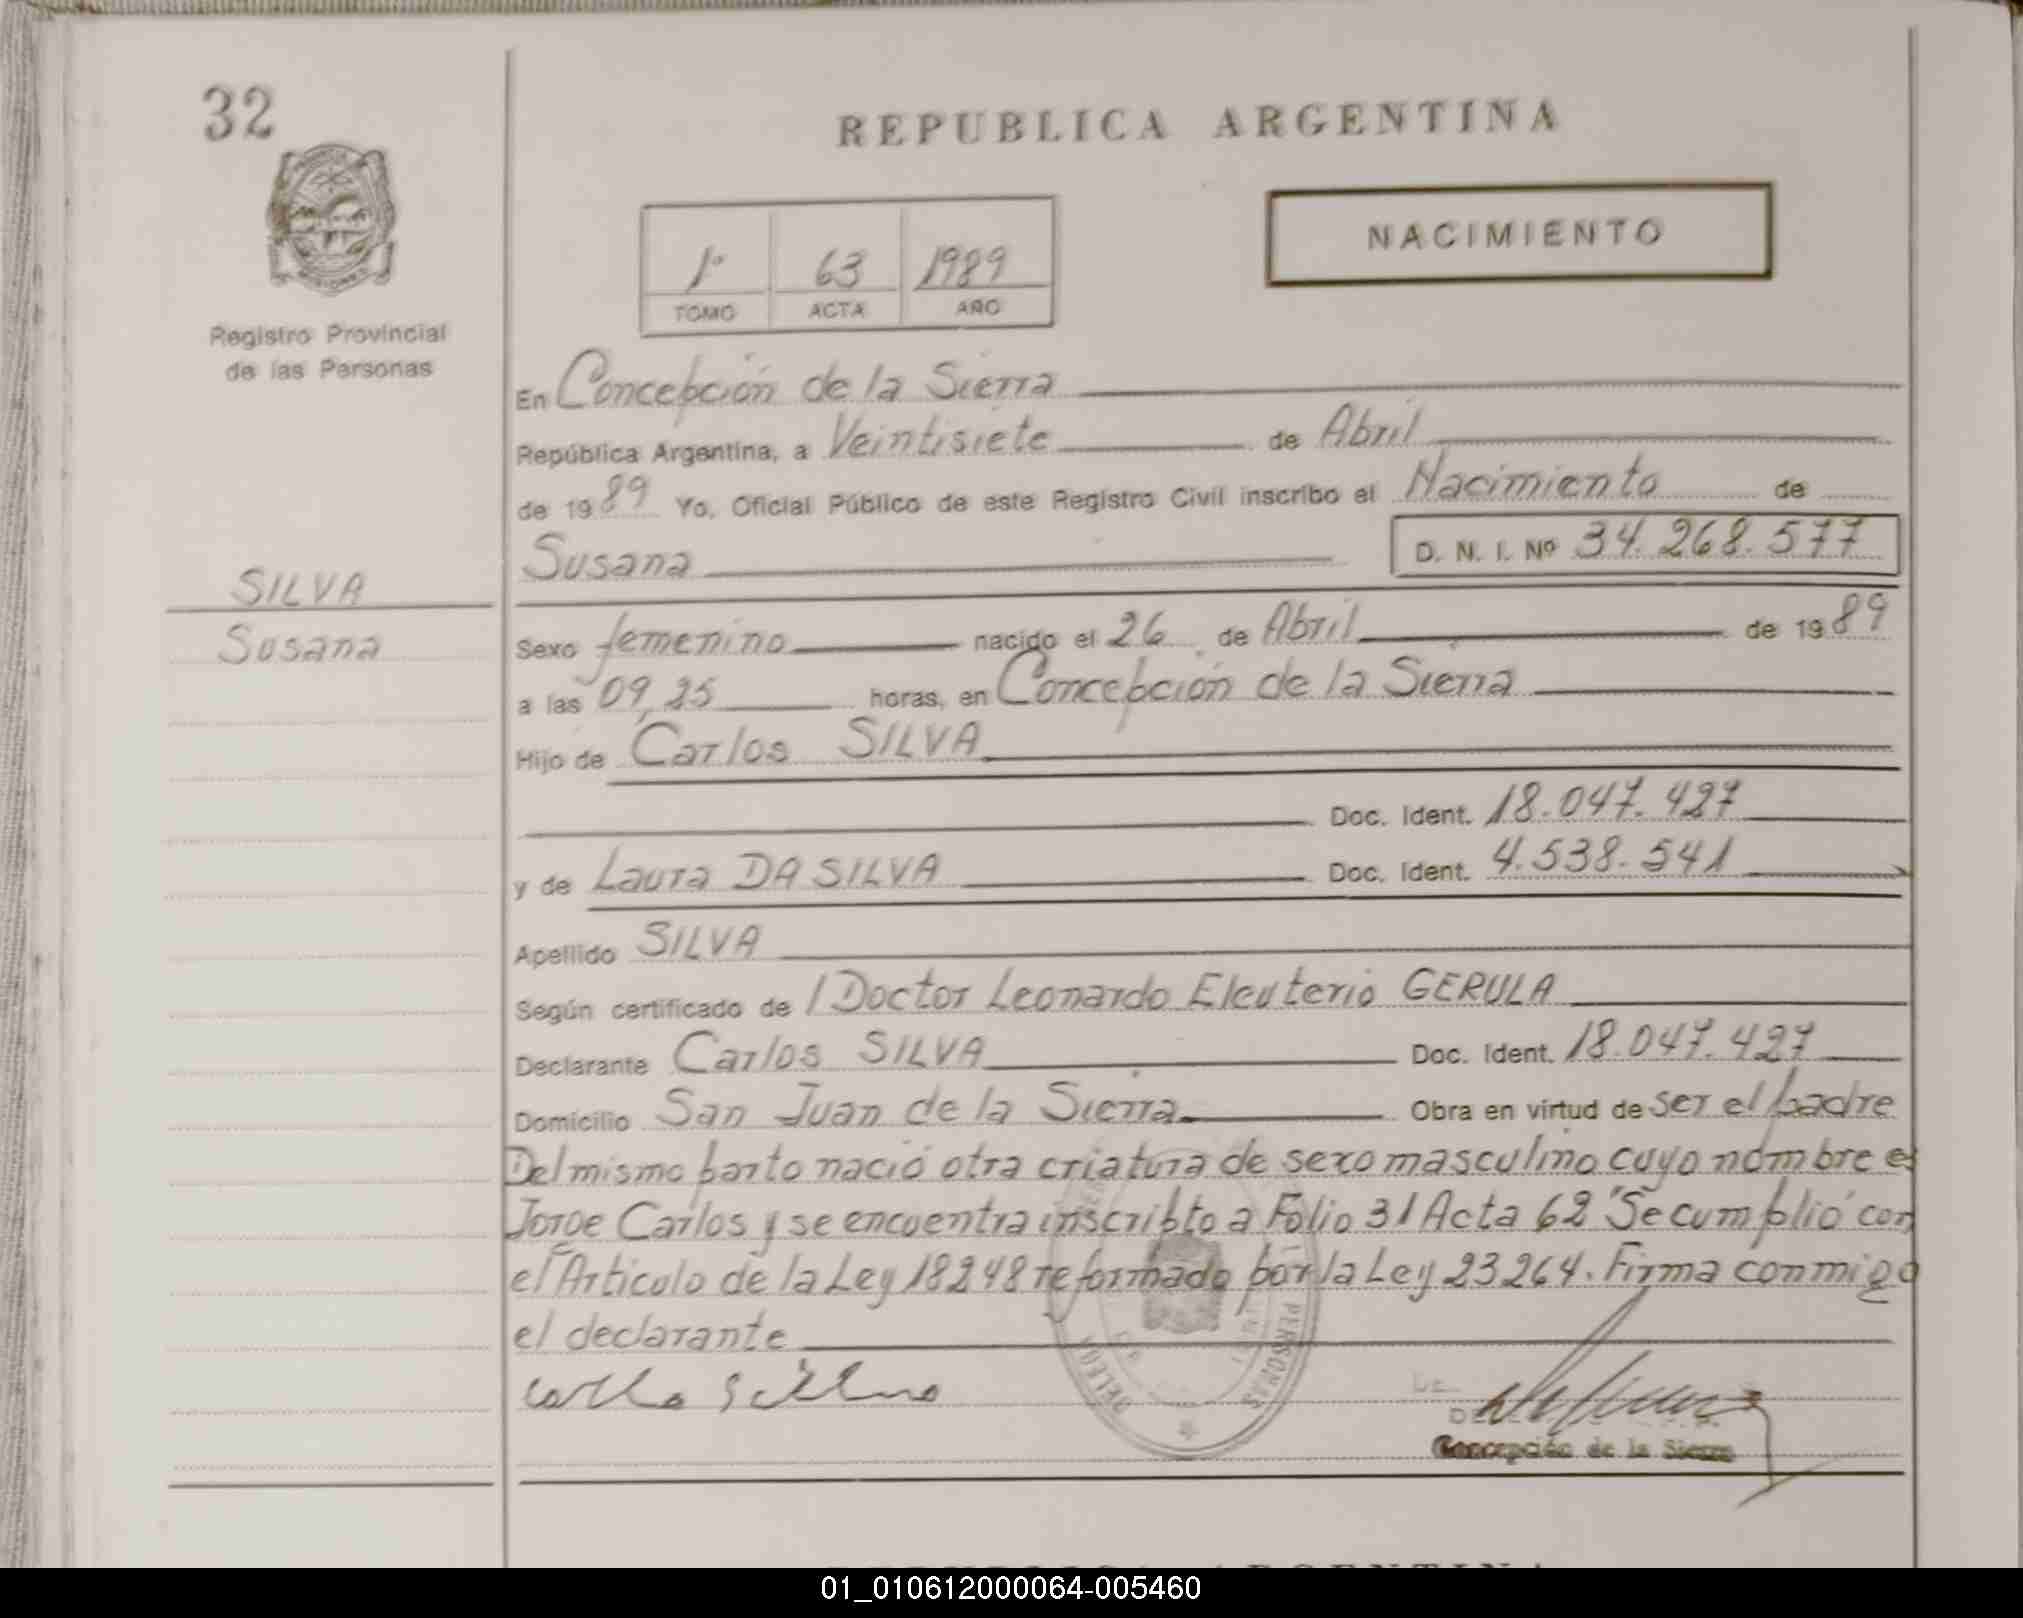 32
REPUBLICA ARGENTINA
NACIMIENTO
1º 63 1989
TOMO ACTA AÑO
Registro Provincial
de las Personas
En Concepción de la Sierra
República Argentina, a Veintisiete de Abril
de 1989 Yo, Oficial Público de este Registro Civil inscribo el Nacimiento de
Susana D. N. I. Nº 34.268.577
SILVA
Susana
Sexo femenino nacido el 26 de Abril de 1989
a las 09,25 horas, en Concepción de la Sierra
Hijo de Carlos SILVA
Doc. Ident. 18.047.427
y de Laura DA SILVA Doc. Ident. 4.538.541
Apellido SILVA
Según certificado de l Doctor Leonardo Eleuterio GERULA
Declarante Carlos SILVA Doc. Ident. 18.047.427
Domicilio San Juan de la Sierra Obra en virtud de ser el padre
Del mismo parto nació otra criatura de sexo masculino cuyo nombre es
Jorge Carlos y se encuentra inscripto a Folio 31 Acta 62 Se cumplió con
el Artículo de la Ley 18248 reformado por la Ley 23264. Firma conmigo
el declarante
PERSONAS
Concepción de la Sierra
ARGENTINA
01_010612000064-005460